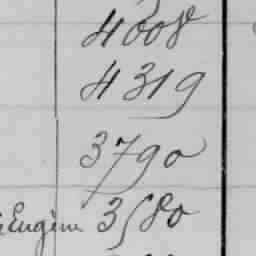 4008
4319
3790
Engin 3580